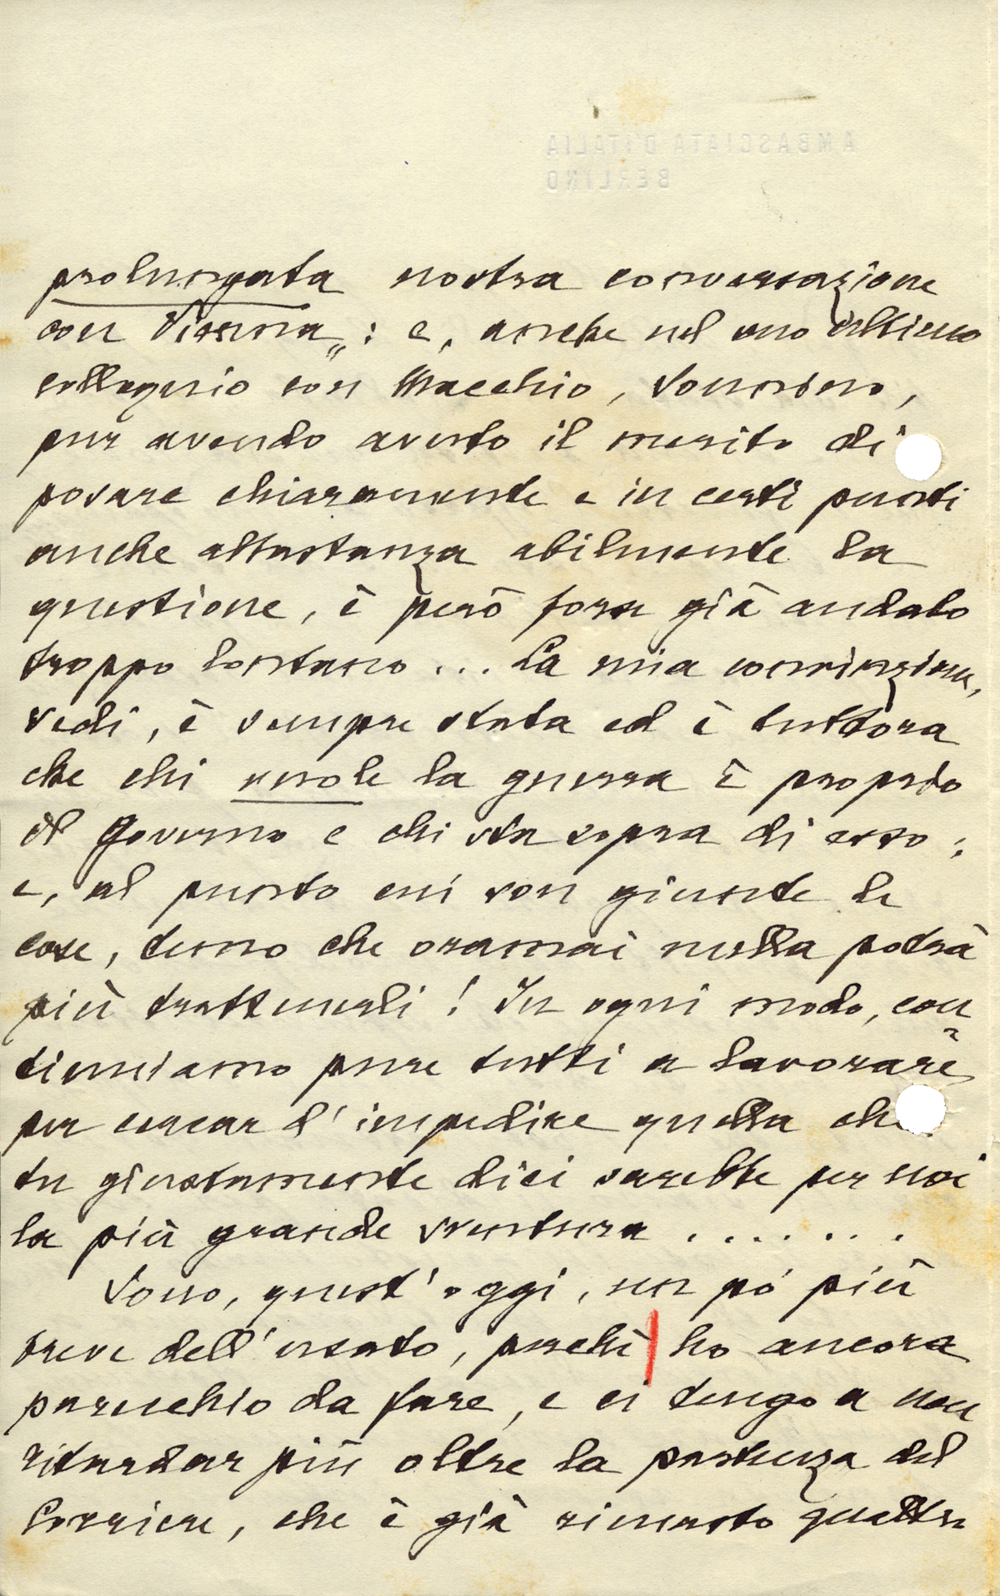 AMBASCIATA D'ITALIA
BERLINO
prolungata nostra conversazione
con Vienna„ : e, anche nel suo ultimo
colloquio con Macchio, Sonnino,
pur avendo avuto il merito di
posare chiaramente e in certi punti
anche abbastanza abilmente la
questione, è però forse già andato
troppo lontano ... La mia convinzione,
vedi, è sempre stata ed è tuttora
che chi vuole la guerra è proprio
il Governo e chi sta sopra di esso ;
e, al punto cui son giunte le
cose, temo che oramai nulla potrà
più trattenerli ! In ogni modo, con
tinuiamo pure tutti a lavorare
per cercar d'impedire quella che
tu giustamente dici sarebbe per noi
la più grande sventura . . . . . . .
Sono, quest'oggi, un pó più
breve dell'usato, perchè ho ancora
parecchio da fare, e ci tengo a non
ritardar più oltre la partenza del
Corriere, che è già rimasto quattro